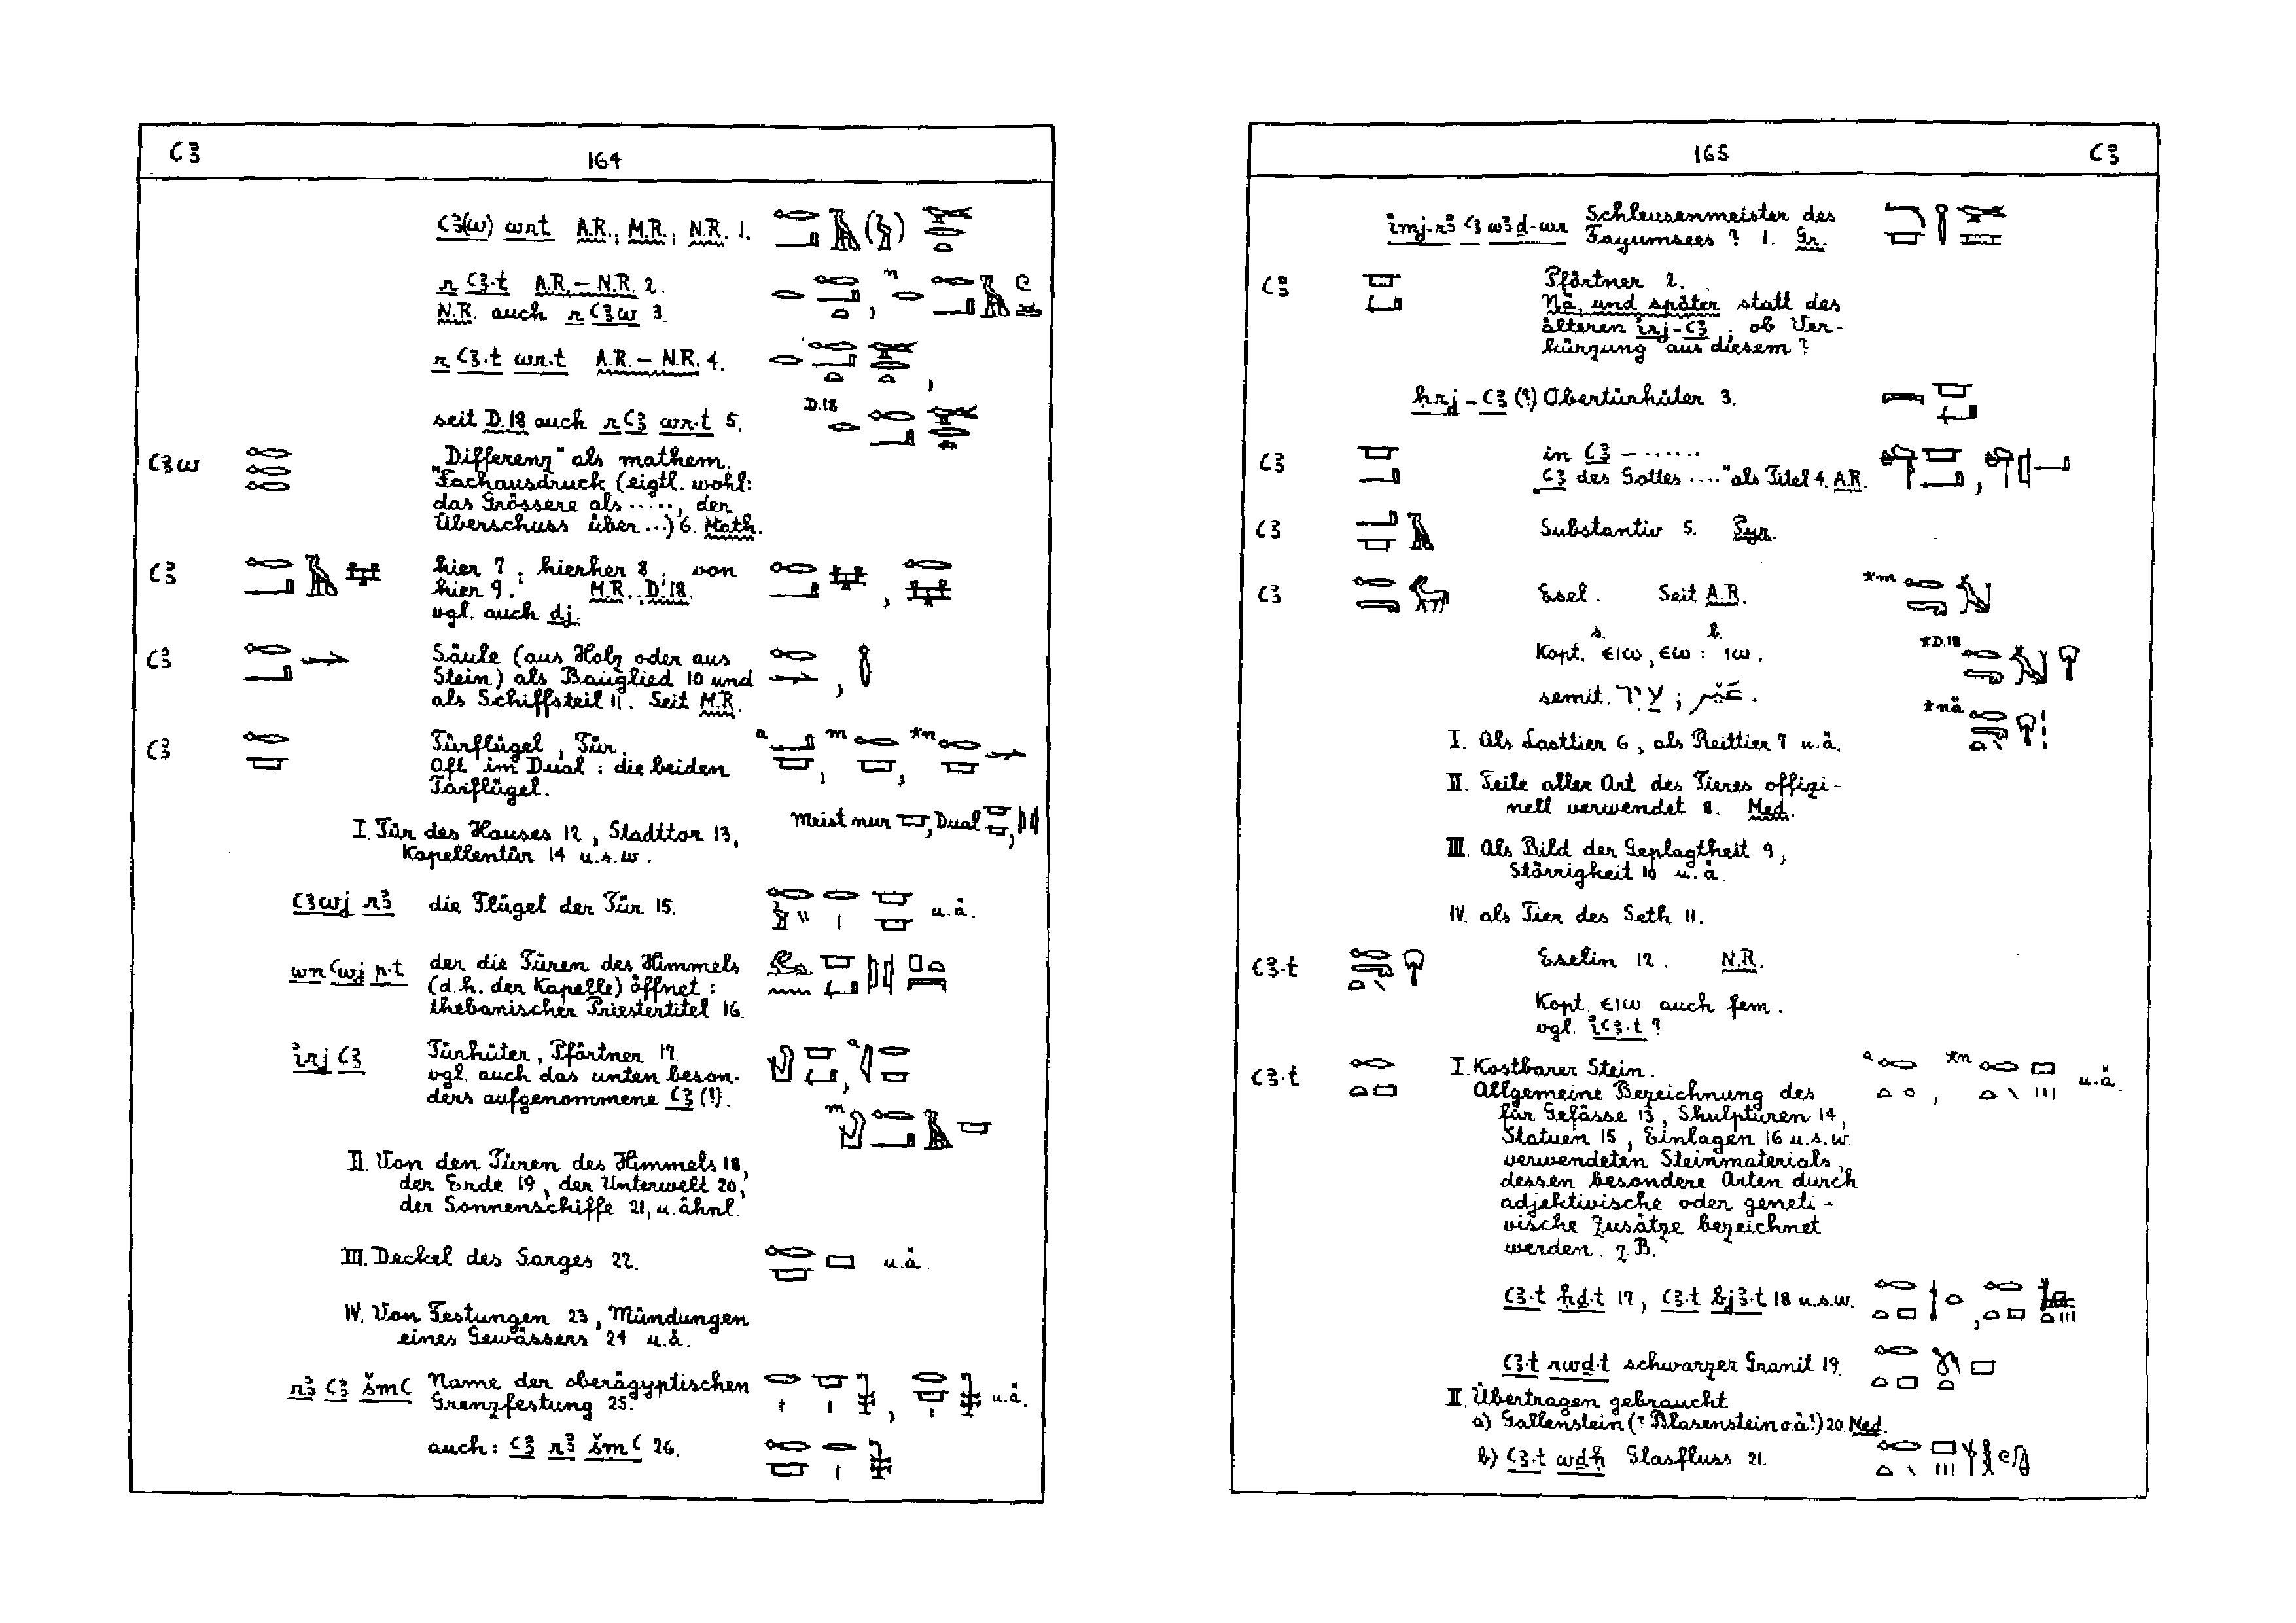 ꜥꜣ 164
ꜥꜣ(w) wrt A.R.; M.R.; N.R. 1.
r ꜥꜣ·t A.R. – N.R. 2.
N.R. auch r ꜥꜣw 3.
r ꜥꜣ·t wr·t A.R. – N.R. 4.
D.18
seit D.18 auch r ꜥꜣ wr·t 5.
ꜥꜣw „Differenz" als mathem.
Fachausdruck (eigtl. wohl:
das Grössere als ....., der
Überschuss über ...) 6. Math.
ꜥꜣ hier 7; hierher 8; von
hier 9. M.R., D.18.
vgl. auch dj.
ꜥꜣ Säule (aus Holz oder aus
Stein) als Bauglied 10 und
als Schiffsteil 11. Seit M.R.
ꜥꜣ Türflügel, Tür. a m *n
Oft im Dual: die beiden
Türflügel.
Meist nur, Dual
I. Tür des Hauses 12, Stadttor 13,
Kapellentür 14 u.s.w.
ꜥꜣwj rꜣ die Flügel der Tür 15. u.ä.
wn ꜥwj p·t der die Türen des Himmels
(d.h. der Kapelle) öffnet:
thebanischer Priestertitel 16.
irj ꜥꜣ Türhüter, Pförtner 17. a
vgl. auch das unten beson-
ders aufgenommene ꜥꜣ (?). m
II. Von den Türen des Himmels 18,
der Erde 19, der Unterwelt 20,
der Sonnenschiffe 21, u. ähnl.
III. Deckel des Sarges 22. u.ä.
IV. Von Festungen 23, Mündungen
eines Gewässers 24 u.ä.
rꜣ ꜥꜣ šmꜥ Name der oberägyptischen
Grenzfestung 25. u.ä.
auch: ꜥꜣ rꜣ šmꜥ 26.
165 ꜥꜣ
imj-rꜣ ꜥꜣ wꜣḏ-wr Schleusenmeister des
Fayumsees? 1. Gr.
ꜥꜣ Pförtner 2.
Nä. und später statt des
älteren irj-ꜥꜣ; ob Ver-
kürzung aus diesem?
ḥrj-ꜥꜣ (?) Obertürhüter 3.
ꜥꜣ in ꜥꜣ – ......
„ꜥꜣ des Gottes ...." als Titel 4. A.R.
ꜥꜣ Substantiv 5. Pyr.
ꜥꜣ Esel. Seit A.R. *m
s. b.
Kopt. ⲉⲓⲱ, ⲉⲱ: ⲓⲱ. *D.18
semit. עַיִר; عَيْر.
*nä
I. Als Lasttier 6, als Reittier 7 u.ä.
II. Teile aller Art des Tieres offizi-
nell verwendet 8. Med.
III. Als Bild der Geplagtheit 9,
Störrigkeit 10 u.ä.
IV. als Tier des Seth 11.
ꜥꜣ·t Eselin 12. N.R.
Kopt. ⲉⲓⲱ auch fem.
vgl. iꜥꜣ·t?
ꜥꜣ·t I. Kostbarer Stein. a *n u.ä.
Allgemeine Bezeichnung des
für Gefässe 13, Skulpturen 14,
Statuen 15, Einlagen 16 u.s.w.
verwendeten Steinmaterials,
dessen besondere Arten durch
adjektivische oder geneti-
vische Zusätze bezeichnet
werden. z.B.
ꜥꜣ·t ḥḏ·t 17, ꜥꜣ·t bjꜣ·t 18 u.s.w.
ꜥꜣ·t rwḏ·t schwarzer Granit 19.
II. Übertragen gebraucht
a) Gallenstein (? Blasenstein o.ä.?) 20. Med.
b) ꜥꜣ·t wdḥ Glasfluss 21.